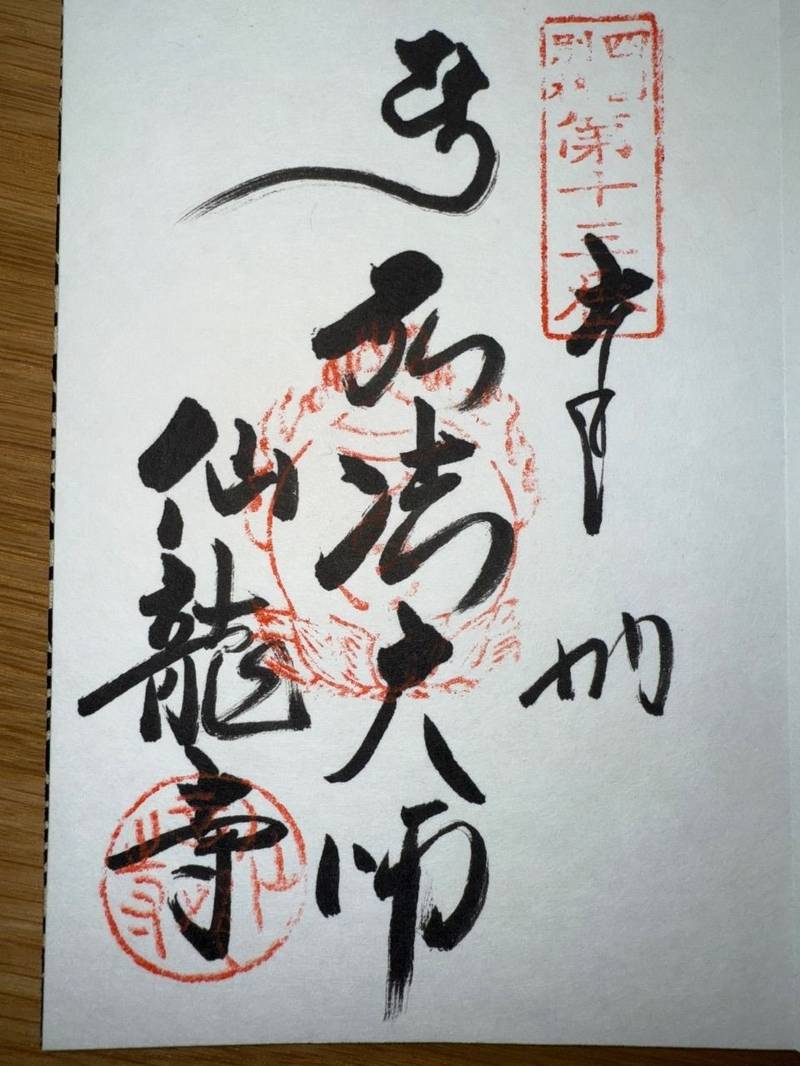 四国
別格
第十三番
奉拝
弘法大師
仙龍寺